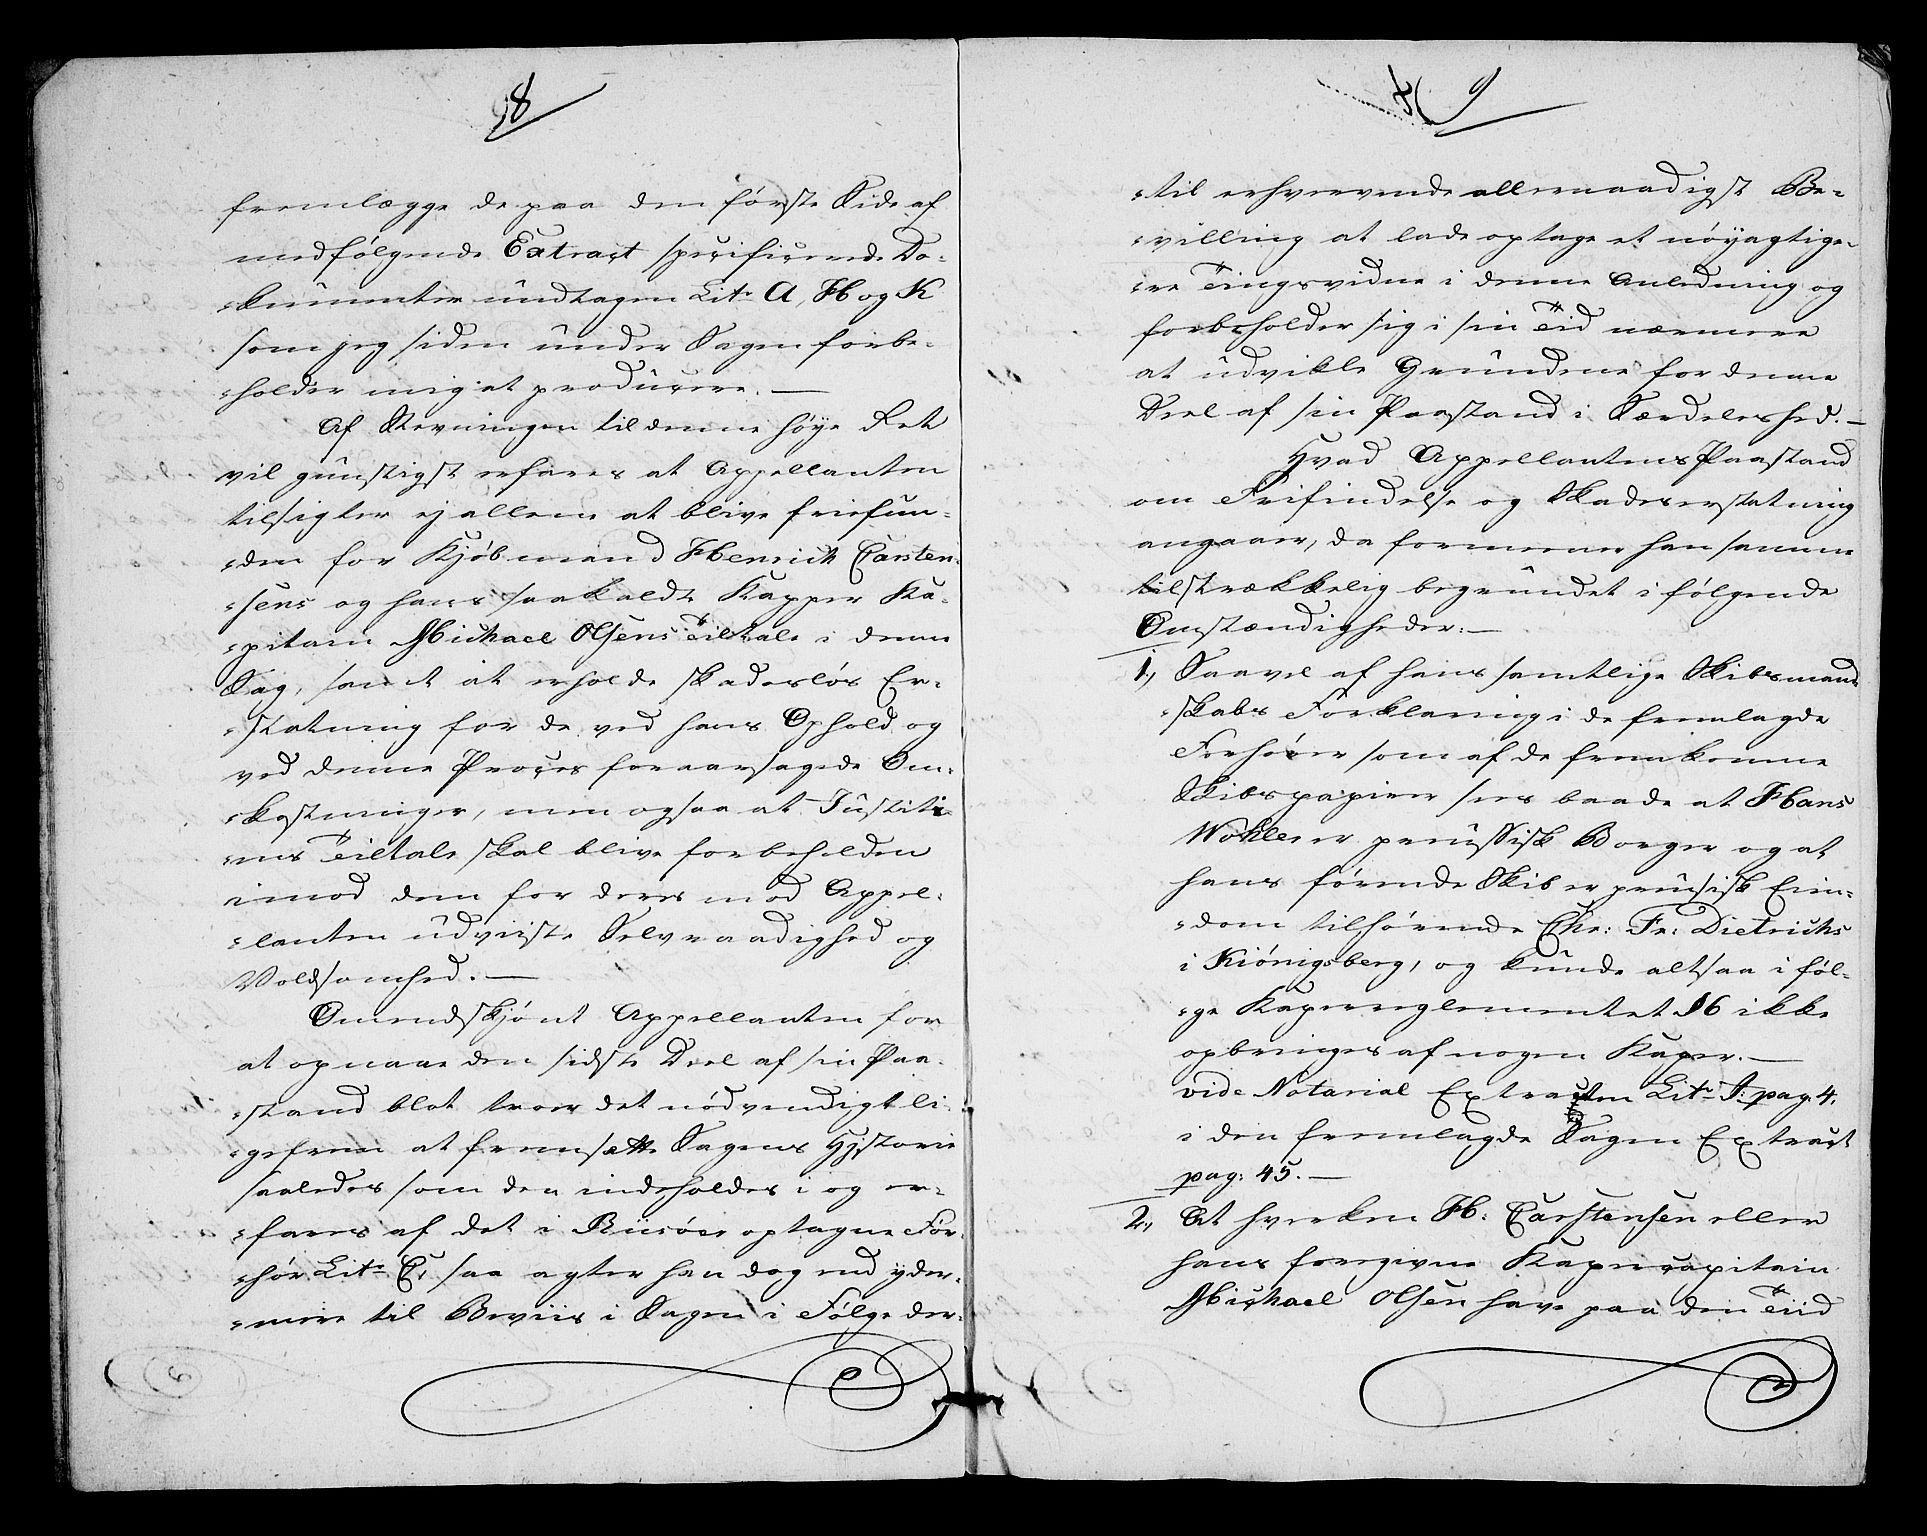 8
fremlægge de paa den første Side af
medfølgende Extract specificerede Do-
-kumenter undtagen Litr A, H og K
som jeg siden under Sagen forbe-
-holder mig at producere. —
Af Stevningen til denne høye Ret
vil gunstigst erfares at Appellanten
tilsigter ej allene at blive friefun-
-den for Kjøbmand Henrich Carsten-
-sens og hans saakaldte Kapper Ka-
-pitain Michael Olsens Tiltale i denne
Sag, samt at erholde skadesløs Er-
-statning for de ved hans Ophold og
ved denne Proces foraarsagede Om-
-kostninger, men ogsaa at Justiti-
-ens Tiltale skal blive forbeholden
imod dem for deres mod Appel-
-lanten udviiste Selvraadighed og
Voldsomhed. —
Omendskjønt Appellanten for
at opnaae den sidste Deel af sin Paa-
-stand blot troer det nødvendigt li-
-gefrem at fremsætte Sagens Hystorie
saaledes som den indeholdes i og er-
-fares af det i Riisøer optagne For-
-hør Litr C, saa agter han dog end yder-
-mere til Beviis i Sagen i Følge der-
9
-til erhvervende allernaadigst Be-
-villing at lade optage et nøyagtige-
-re Tingsvidne i denne Anledning og
forbeholder sig i sin Tiid nærmere
at udvikle Grundene for denne
Deel af sin Paastand i Særdeleshed. —
Hvad Appellantens Paastand
om Frifindelse og Skadeserstatning
angaaer, da formener han samme
tilstrækkelig begrundet i følgende
Omstændigheder: —
1, Saavel af hans samtlige Skibsmand-
-skabs Forklaring i de fremlagde
Forhører som af de fremkomne
Skibspapirer sees baade at Hans
Wohler er preussisk Borger og at
hans førende Skib er preusisk Eien-
-dom tilhørende Chr: Fr: Dietrichs
i Kiønigsberg, og kunde altsaa i føl-
-ge Kaperreglementet §6 ikke
opbringes af nogen Kaper. —
vide Notarial Extracten Litr I: pag. 4.
i den fremlagde Sagen Extract
pag: 45. —
2, At hverken H: Carstensen eller
hans foregivne Kapercapitain
Michael Olsen have paa den Tiid